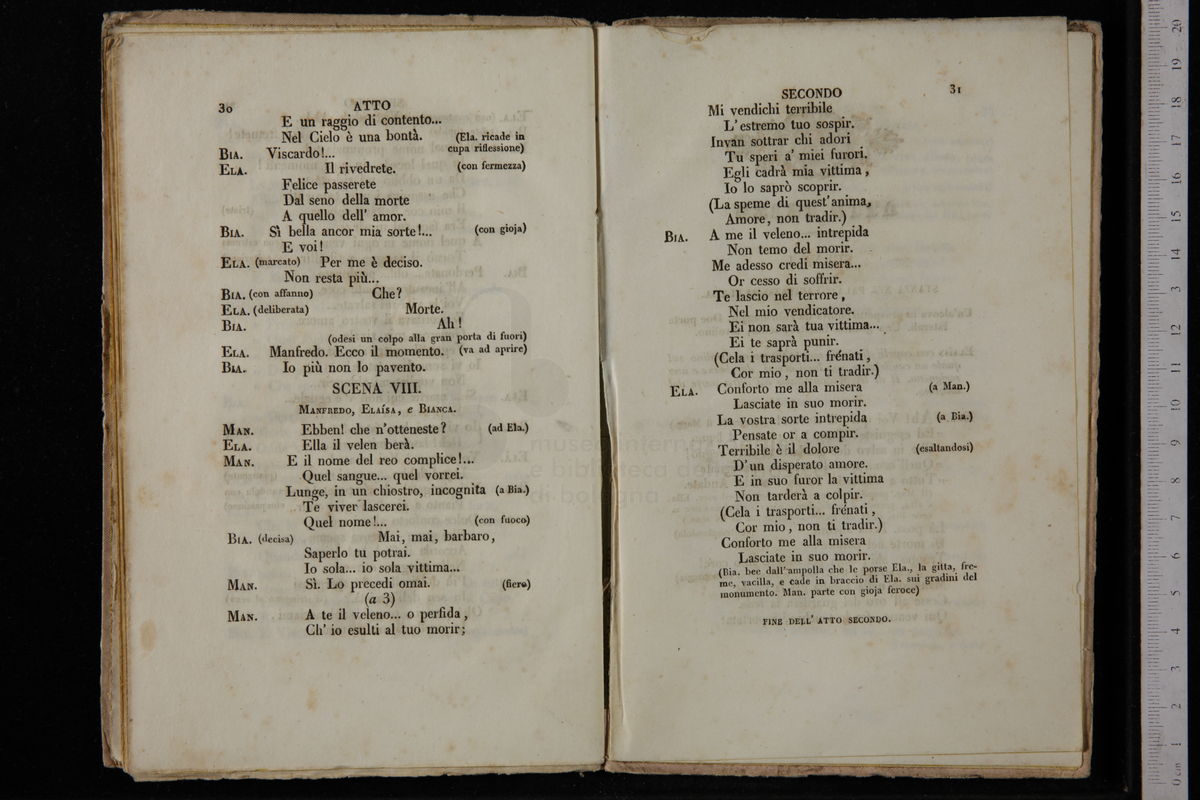 30 ATTO
E un raggio di contento...
Nel Cielo è una bontà. (Ela. ricade in cupa riflessione)
BIA. Viscardo!...
ELA. Il rivedrete. (con fermezza)
Felice passerete
Dal seno della morte
A quello dell' amor.
BIA. Sì bella ancor mia sorte!... (con gioja)
E voi!
ELA. (marcato) Per me è deciso.
Non resta più...
BIA. (con affanno) Che?
ELA. (deliberata) Morte.
BIA. Ah!
(odesi un colpo alla gran porta di fuori)
ELA. Manfredo. Ecco il momento. (va ad aprire)
BIA. Io più non lo pavento.
SCENA VIII.
MANFREDO, ELAÍSA, e BIANCA.
MAN. Ebben! che n'otteneste? (ad Ela.)
ELA. Ella il velen berà.
MAN. E il nome del reo complice!...
Quel sangue... quel vorrei.
Lunge, in un chiostro, incognita (a Bia.)
Te viver lascerei.
Quel nome!... (con fuoco)
BIA. (decisa) Mai, mai, barbaro,
Saperlo tu potrai.
Io sola... io sola vittima...
MAN. Sì. Lo precedi omai. (fiero)
(a 3)
MAN. A te il veleno... o perfida,
Ch' io esulti al tuo morir;
SECONDO 31
Mi vendichi terribile
L' estremo tuo sospir.
Invan sottrar chi adori
Tu speri a' miei furori.
Egli cadrà mia vittima,
Io lo saprò scoprir.
(La speme di quest' anima,
Amore, non tradir.)
BIA. A me il veleno... intrepida
Non temo del morir.
Me adesso credi misera...
Or cesso di soffrir.
Te lascio nel terrore,
Nel mio vendicatore.
Ei non sarà tua vittima...
Ei te saprà punir.
(Cela i trasporti... frénati,
Cor mio, non ti tradir.)
ELA. Conforto me alla misera (a Man.)
Lasciate in suo morir.
La vostra sorte intrepida (a Bia.)
Pensate or a compir.
Terribile è il dolore (esaltandosi)
D'un disperato amore.
E in suo furor la vittima
Non tarderà a colpir.
(Cela i trasporti... frénati,
Cor mio, non ti tradir.)
Conforto me alla misera
Lasciate in suo morir.
(Bia. bee dall'ampolla che le porse Ela., la gitta, fre-
me, vacilla, e cade in braccio di Ela. sui gradini del
monumento. Man. parte con gioja feroce)
FINE DELL' ATTO SECONDO.